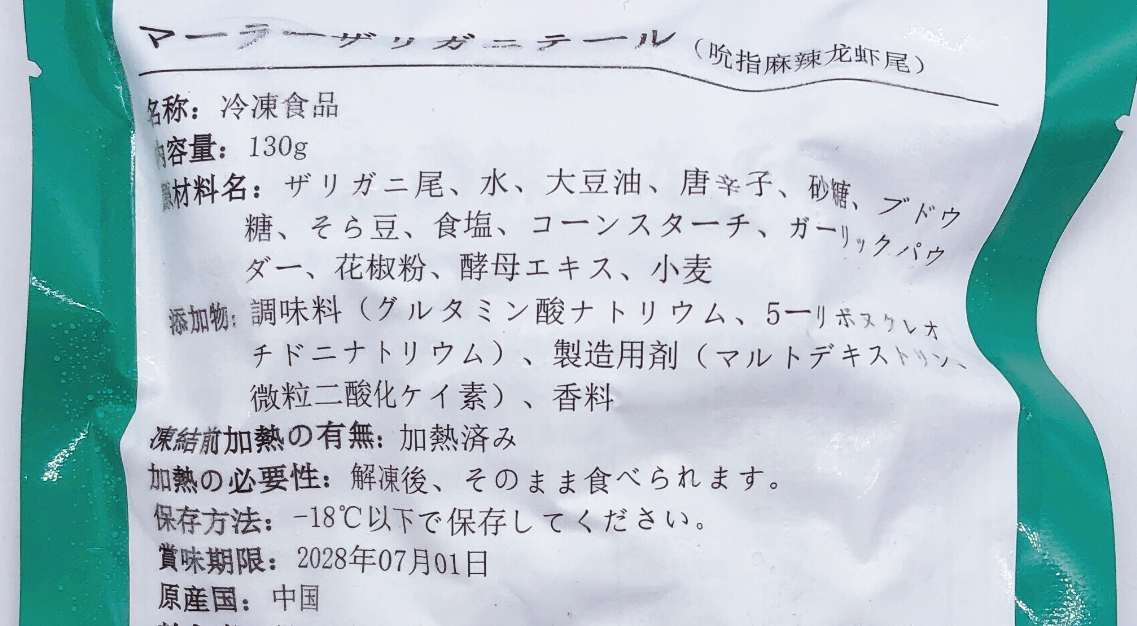 マーラーザリガニテール（吮指麻辣龙虾尾）
名称：冷凍食品
内容量：130g
原材料名：ザリガニ尾、水、大豆油、唐辛子、砂糖、ブドウ
糖、そら豆、食塩、コーンスターチ、ガーリックパウ
ダー、花椒粉、酵母エキス、小麦
添加物：調味料（グルタミン酸ナトリウム、5ーリボヌクレオ
チドニナトリウム）、製造用剤（マルトデキストリン、
微粒二酸化ケイ素）、香料
凍結前加熱の有無：加熱済み
加熱の必要性：解凍後、そのまま食べられます。
保存方法：-18℃以下で保存してください。
賞味期限：2028年07月01日
原産国：中国